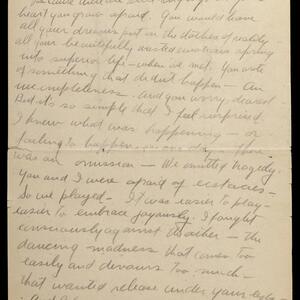 heart you grow afraid. You would have
all your dreams put in the clothes of reality
all your beautifully wanted
into superior life – when we met. You wrote
of something that didn't happen – An
incompleteness. And you worry, dearest
But it's so simple that I feel surprised.
I knew what was happening – or
failing to happen
was an omission – We omitted tragedy.
You and I were afraid of ecstacies –
So we played – It was easier to play –
easier to embrace joyously. I fought
consciously against the other – the
dancing madness that comes too
easily and devours too much –
that wanted release under your